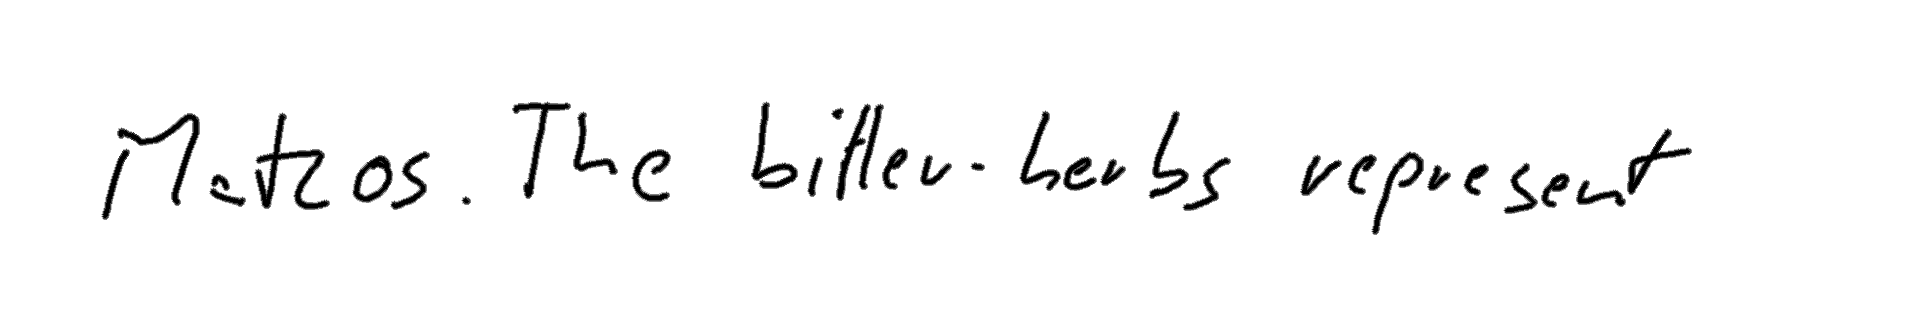 Matzos. The bitter-herbs represent